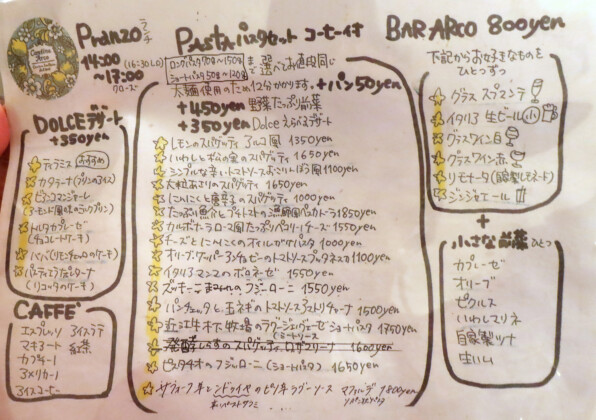 Pranzo ランチ
14:00 (16:30 LO)
~17:00
クローズ
DOLCE デザート
+350yen
ティラミス おすすめ
カタラーナ (プリンのアイス)
ビアンコマンジャーレ
(アーモンド風味のミルクプリン)
トルタカプレーゼ
(チョコレートケーキ)
ババ (リモンチェッロのケーキ)
(リコッタのケーキ)
CAFFE'
エスプレッソ アイスラテ
マキアート 紅茶
カプチーノ
アメリカーノ
アイスコーヒー
PASTA パスタセット コーヒー付
ロングパスタ 90g~150g
ショートパスタ 50g~120g
まで選べてお値段同じ
太麺使用のため12分かかります。
+パン50yen
+450yen 野菜たっぷり前菜
+350yen Dolce えらべるデザート
レモンのスパゲッティ アルコ風 1350yen
いわしとずらの実のスパゲッティ 1650yen
シンプルな辛いトマトソース 1100yen
大粒あさりのスパゲッティ 1650yen
にんにくと唐辛子のスパゲッティ 1000yen
たっぷり魚介とプチトマトの漁師風ペスカトーラ 1850yen
カルボナーラ ローマ風 たっぷりペコリーノチーズ 1550yen
チーズとにんにくのオイルがけパスタ 1000yen
オリーブ・ケッパー・アンチョビーのトマトソース プッタネスカ 1100yen
イタリア マンマの ボロネーゼ 1550yen
ズッキーニまみれの フジローニ 1550yen
パンチェッタと玉ネギのトマトソース アマトリチャーナ 1500yen
近江牛木下牧場のラグー ジェノヴェーゼ ショートパスタ 1750yen
発酵しらすのスパゲッティ ロザマリーナ 1600yen
ピスタチオの フジローニ (ショートパスタ) 1650yen
サフォーク羊とンドゥイヤのピリ辛ラグーソース マファルデ 1800yen
BAR ARCO 800yen
下記からお好きなものを
ひとつずつ
グラス スプマンテ
イタリア 生ビール 小
グラスワイン白
グラスワイン赤
リモナータ (自家製レモネード)
ジンジャエール
+
小さな前菜 ひとつ
カプレーゼ
オリーブ
ピクルス
いわしマリネ
自家製ツナ
生ハム